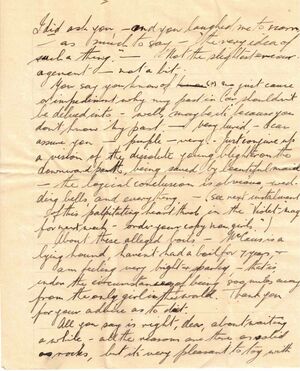 I did ask you - and you laughed me to scorn
- as much as to say "the very idea of
such a thing." - Not the slightest encour-
agement - not a bit.
You say you know of no just cause
or impediment why my past in    shouldn't
be delved into - well maybe it's because you
don't know my past - very lurid - I can
assure you - purple - very. Just conjure up
a vision of the dissolute young blight on the
downward path, being saved by beautiful maid
- the logical conclusion is obvious, wed-
ding bells and everything. - (see next instalment
of this palpitating heart throb in the Violet mag
for next week - order your copy now girls)
About these alleged boils -    is a
lying hound, haven't had a boil for 7 years &
am feeling very bright & sparky - that is
under the circumstances of being 500 miles away
from the only girl in the world. Thank you
for your advice as to diet.
All you say is right, dear, about waiting
a while - all the reasons are there as solid
as rocks, but it's very pleasant to toy with